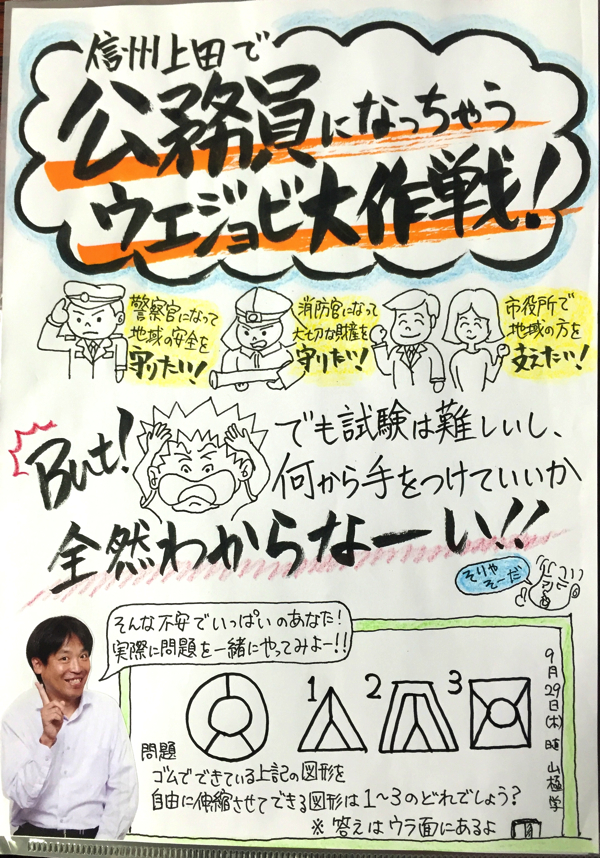 信州上田で
公務員になっちゃう
ウエジョビ大作戦!
警察官になって
地域の安全を
守りたい!
消防官になって
大切な財産を
守りたい!
市役所で
地域の方を
支えたい!
But!
でも試験は難しいし、
何から手をつけていいか
全然わからなーい!!
そりゃ
そーだ
そんな不安でいっぱいのあなた!
実際に問題を一緒にやってみよー!!
1
2
3
9月29日(木) 晴 山極学
問題
ゴムでできている上記の図形を
自由に伸縮させてできる図形は1~3のどれでしょう?
※答えはウラ面にあるよ